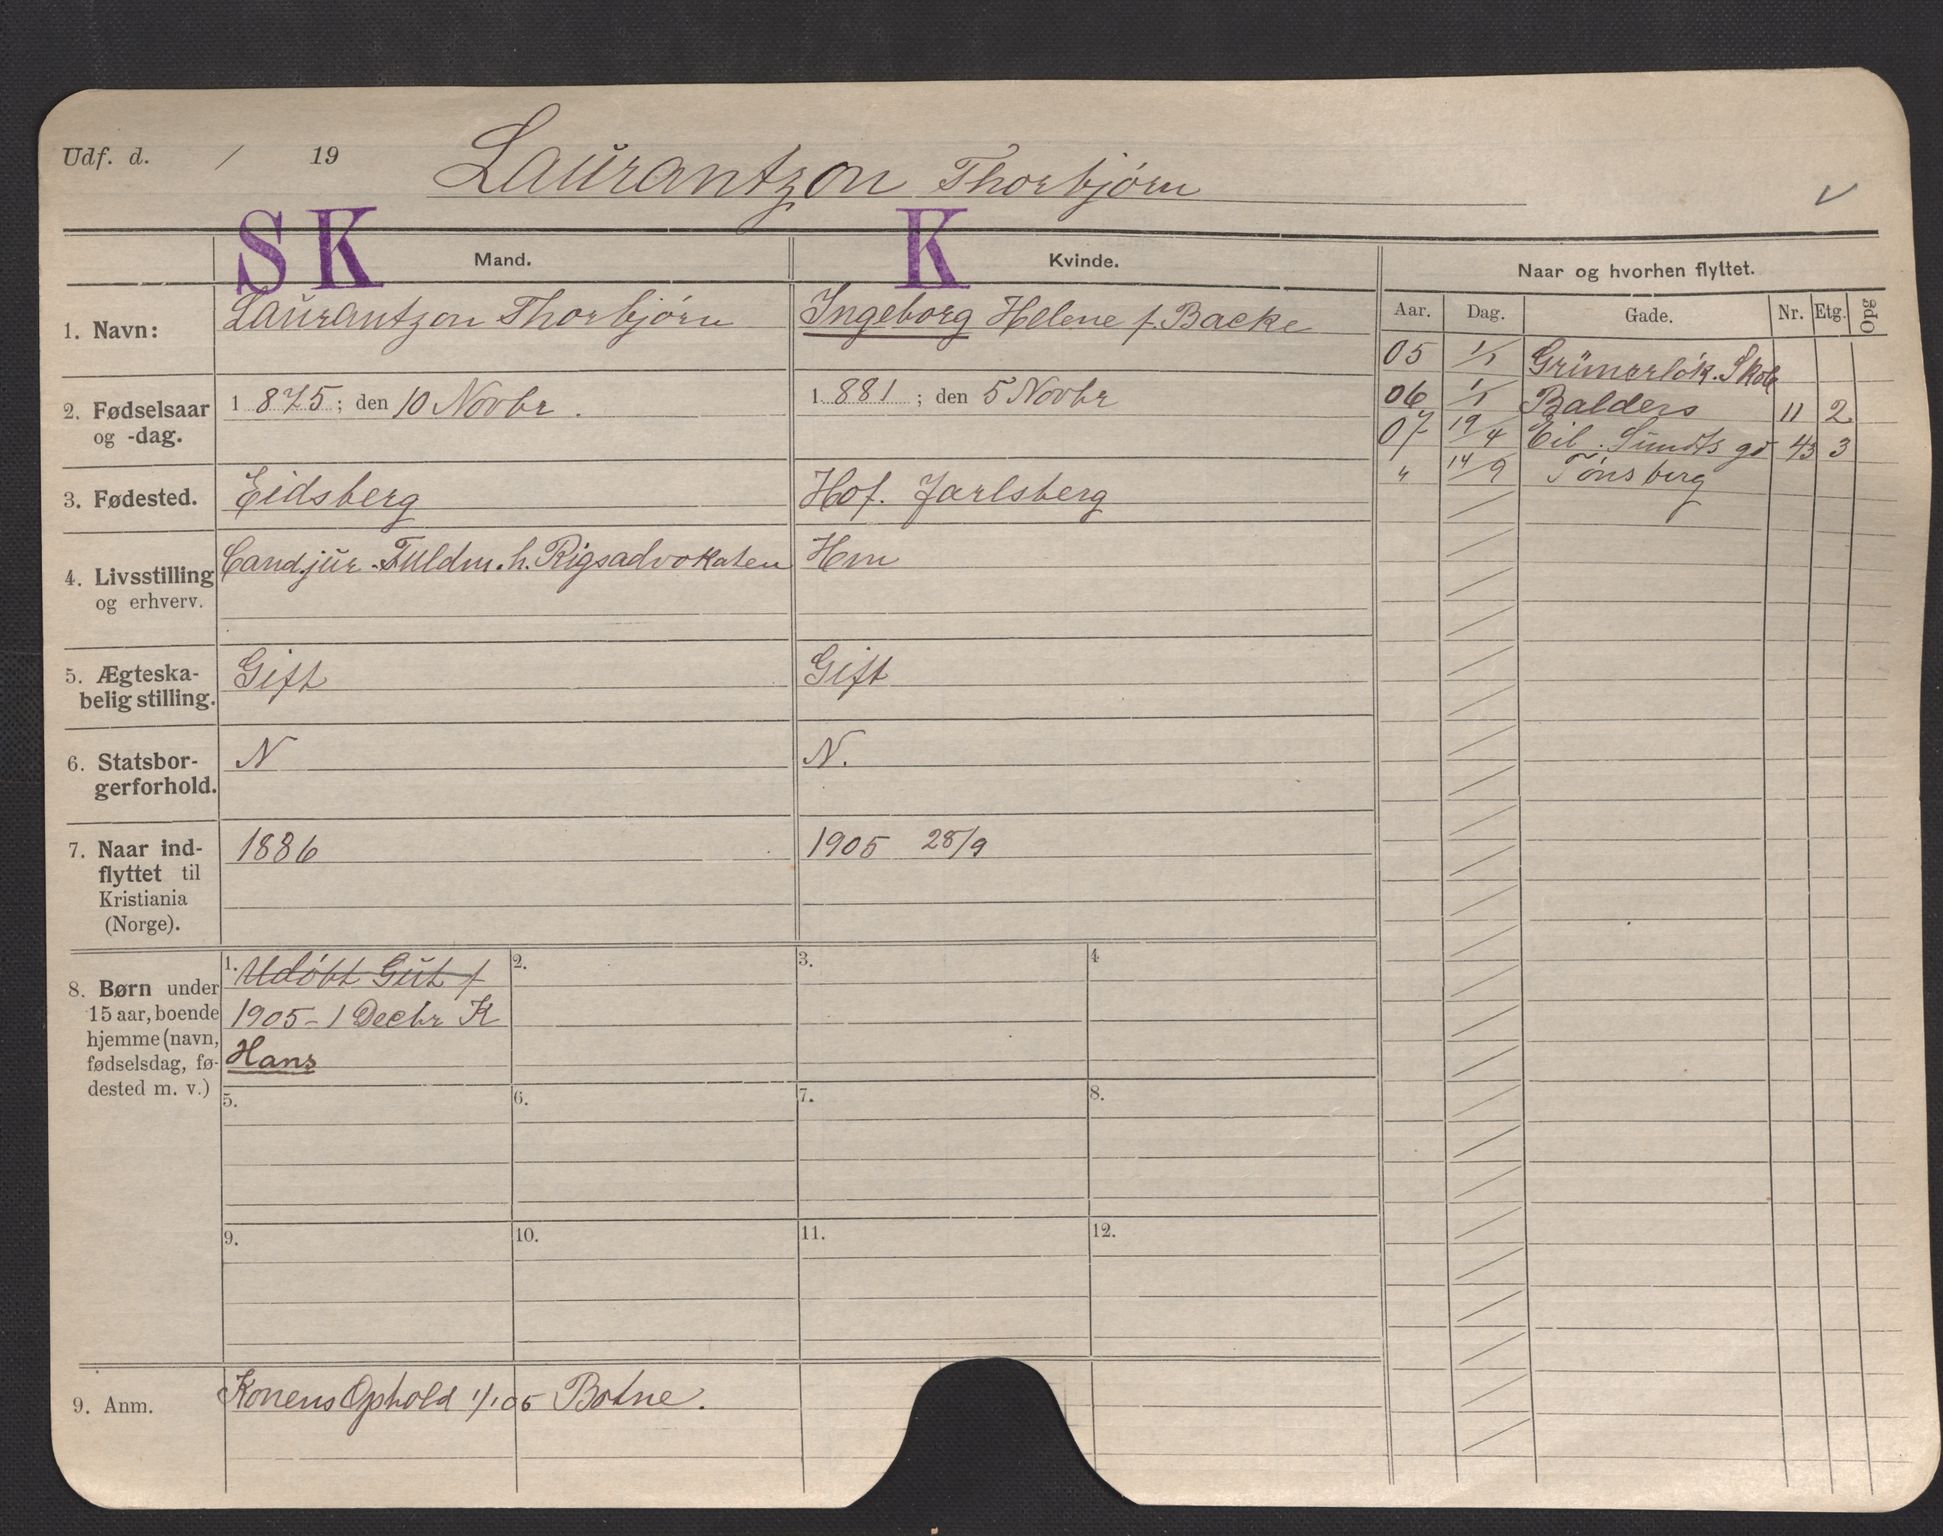 Udf. d. / 19 Laurantzon Thorbjørn
S K K
Mand. Kvinde. Naar og hvorhen flyttet.
Aar. Dag. Gade. Nr. Etg. Opg
1. Navn: Laurantzon Thorbjørn Ingeborg Helene f. Backe
05 1/1 Grünerløk. Skole
2. Fødselsaar og -dag. 1 875 ; den 10 Novbr. 1 881 ; den 5 Novbr
06 1/1 Balders 11 2
07 19/4 Eil. Sundts gd 43 3
" 14/9 Tønsberg
3. Fødested. Eidsberg Hof. Jarlsberg
4. Livsstilling og erhverv. Cand.jur. Fuldm. h. Rigsadvokaten Hm
5. Ægteska-
belig stilling. Gift Gift
6. Statsbor-
gerforhold. N N.
7. Naar ind-
flyttet til
Kristiania
(Norge). 1886 1905 28/9
8. Børn under
15 aar, boende
hjemme (navn,
fødselsdag, fø-
dested m. v.)
1. Udøbt Gut f
1905 - 1 Decbr K
Hans
2. 3. 4
5. 6. 7. 8.
9. 10. 11. 12.
9. Anm. Konens Ophold 1/1 05 Botne.